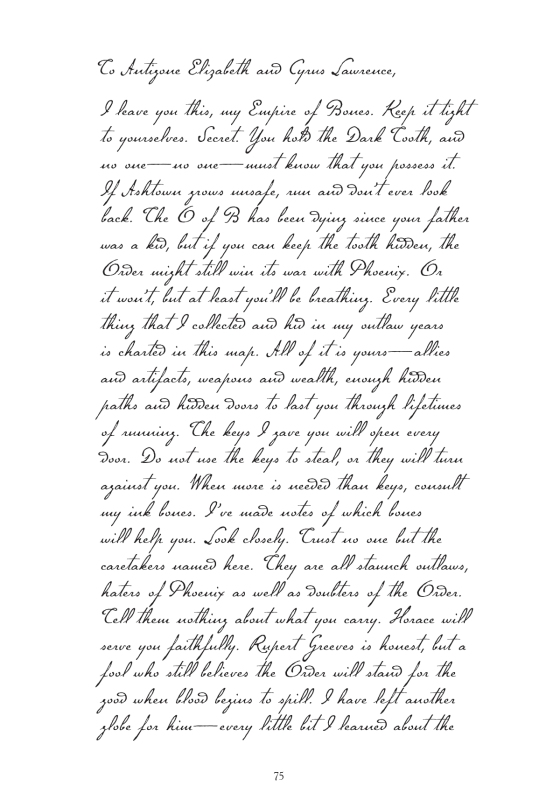 To Antigone Elizabeth and Cyrus Lawrence,
I leave you this, my Empire of Bones. Keep it tight
to yourselves. Secret. You hold the Dark Tooth, and
no one—no one—must know that you possess it.
If Ashtown grows unsafe, run and don't ever look
back. The O of B has been dying since your father
was a kid, but if you can keep the tooth hidden, the
Order might still win its war with Phoenix. Or
it won't, but at least you'll be breathing. Every little
thing that I collected and hid in my outlaw years
is charted in this map. All of it is yours—allies
and artifacts, weapons and wealth, enough hidden
paths and hidden doors to last you through lifetimes
of running. The keys I gave you will open every
door. Do not use the keys to steal, or they will turn
against you. When more is needed than keys, consult
my ink bones. I've made notes of which bones
will help you. Look closely. Trust no one but the
caretakers named here. They are all staunch outlaws,
haters of Phoenix as well as doubters of the Order.
Tell them nothing about what you carry. Horace will
serve you faithfully. Rupert Greeves is honest, but a
fool who still believes the Order will stand for the
good when blood begins to spill. I have left another
globe for him—every little bit I learned about the
75